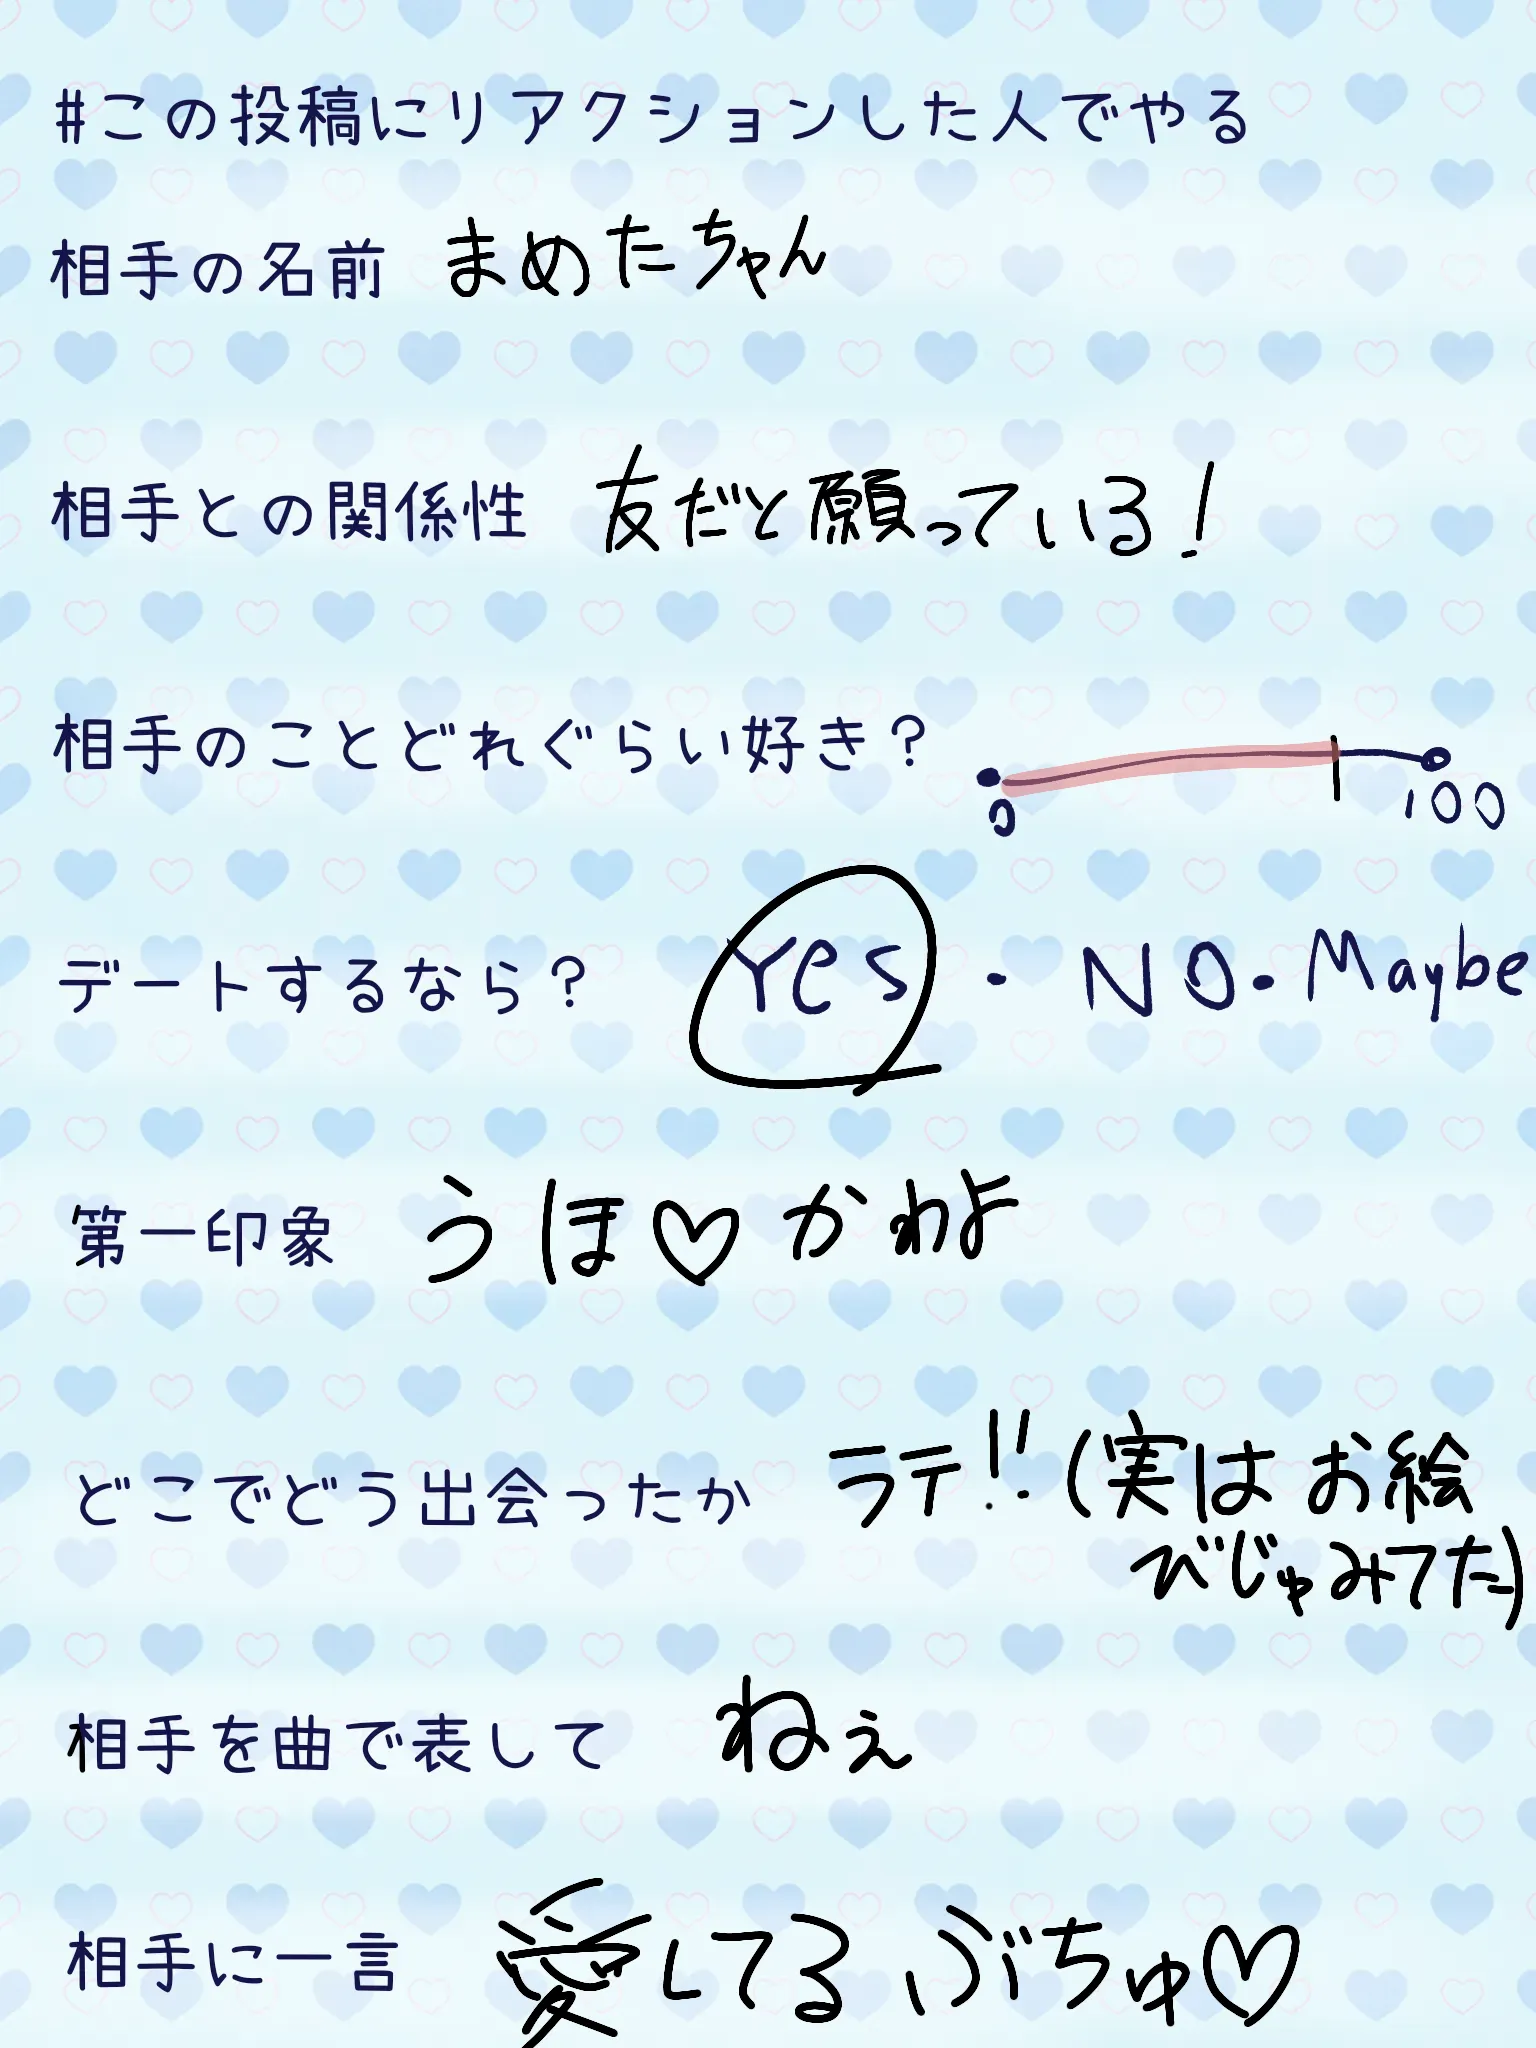 #この投稿にリアクションした人でやる
相手の名前 まめたちゃん
相手との関係性 友だと願っている!
相手のことどれぐらい好き?
0 100
デートするなら? Yes・NO・Maybe
第一印象 うほ♡かわよ
どこでどう出会ったか ラテ!!(実はお絵
びじゃみてた)
相手を曲で表して ねぇ
相手に一言 愛してる ぶちゅ♡